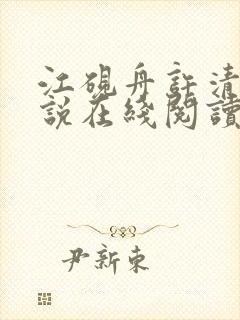 江硯舟許清
說在綫閱讀
尹新東